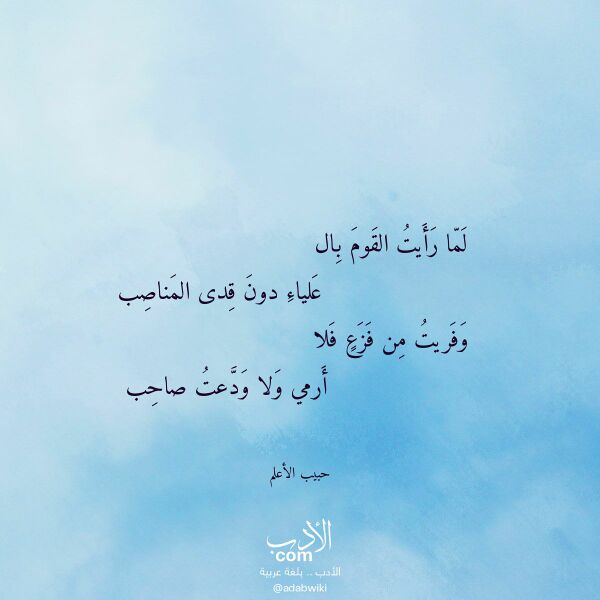 لَمّا رَأَيتُ القَومَ بِال
عَلياءِ دونَ قِدى المَناصِب
وَفَريتُ مِن فَزَعٍ فَلا
أَرمي وَلا وَدَّعتُ صاحِب
حبيب الأعلم
الأدب
com
الأدب .. بلغة عربية
@adabwiki